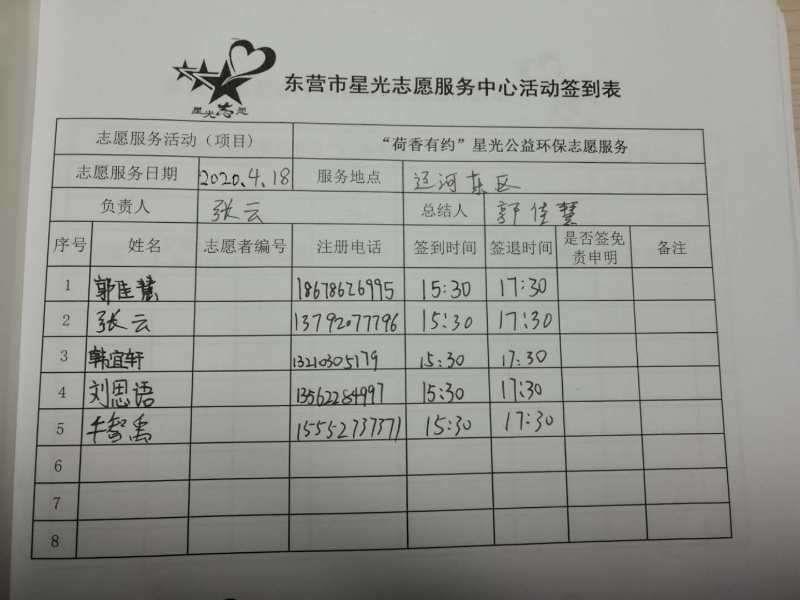 星光志愿
东营市星光志愿服务中心活动签到表
志愿服务活动（项目） “荷香有约”星光公益环保志愿服务
志愿服务日期 2020.4.18 服务地点 运河东区
负责人 张云 总结人 郭佳慧
序号 姓名 志愿者编号 注册电话 签到时间 签退时间 是否签免责申明 备注
1 郭佳慧 18678626995 15:30 17:30
2 张云 13792077796 15:30 17:30
3 韩宜轩 13210305179 15:30 17:30
4 刘思语 13562284997 15:30 17:30
5 牛智禹 15552737371 15:30 17:30
6
7
8